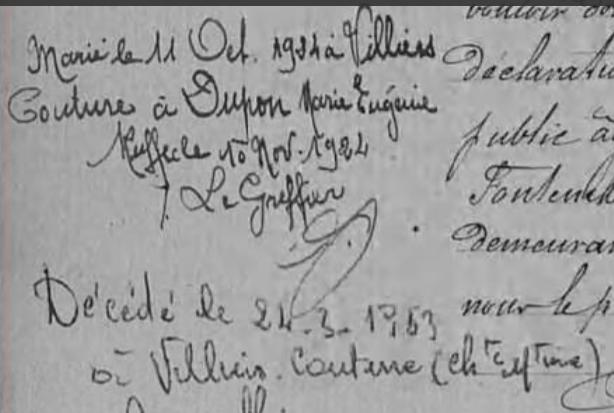 Marié le 11 Oct. 1924 à Villiers
Couture à Dupon Marie Eugénie
Ruffec le 10 Nov. 1924
Le Greffier
Décédé le 24.3.1953
à Villiers. Couture (Chte
déclaratio
public à
Demeuran